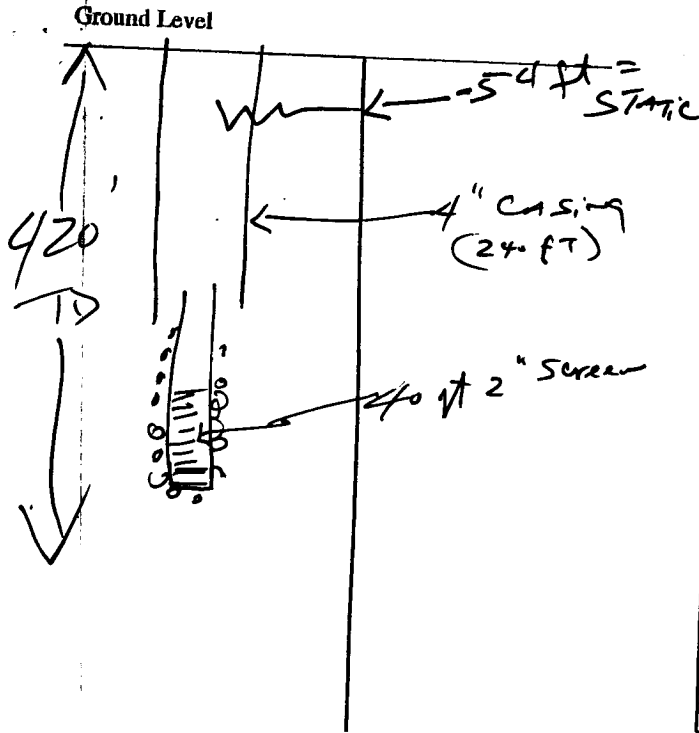 Ground Level
54 ft =
STATIC
4" CASing
(240 fT)
420'
TD
40 ft 2" Screen